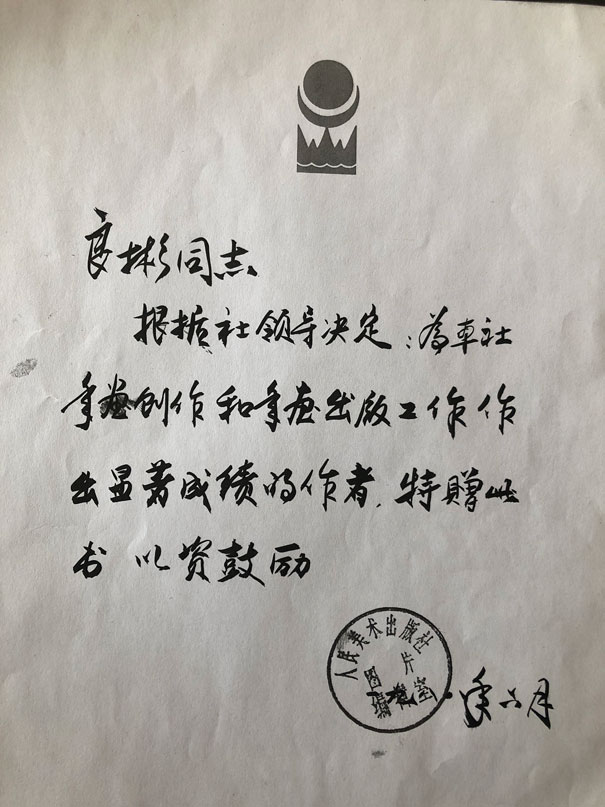 良彬同志
根据社领导决定:为本社
年画创作和年画出版工作作
出显著成绩的作者,特赠此
书 以资鼓励
人民美术出版社
图片
编辑室
年六月